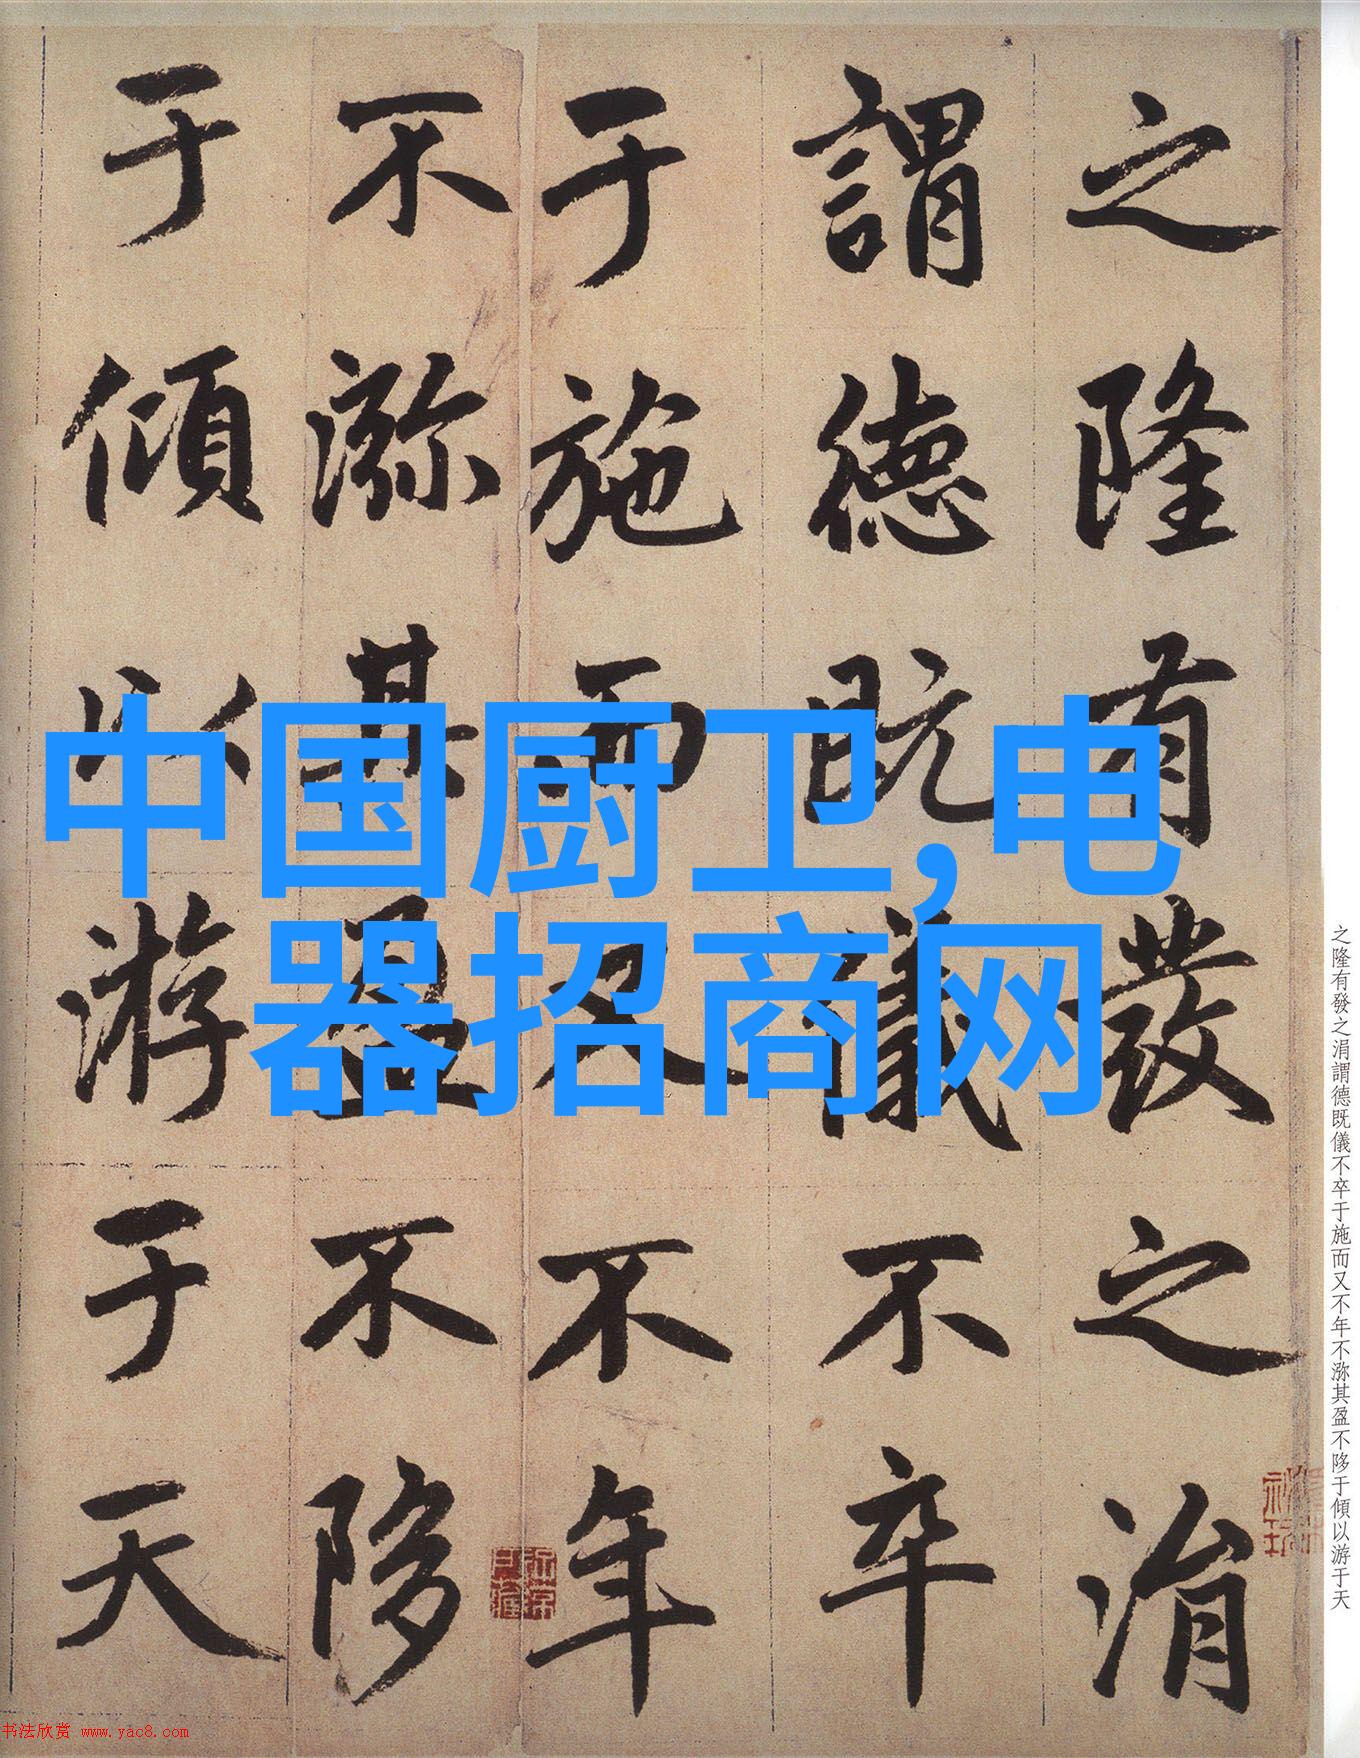 之隆有發之涓
謂德既儀不卒
于施而又不年
不㳽其盈不陊
于傾以游于天
中国厨卫,电
器招商网
之隆有發之涓謂德既儀不卒于施而又不年不㳽其盈不陊于傾以游于天
书法欣赏 www.yac8.com